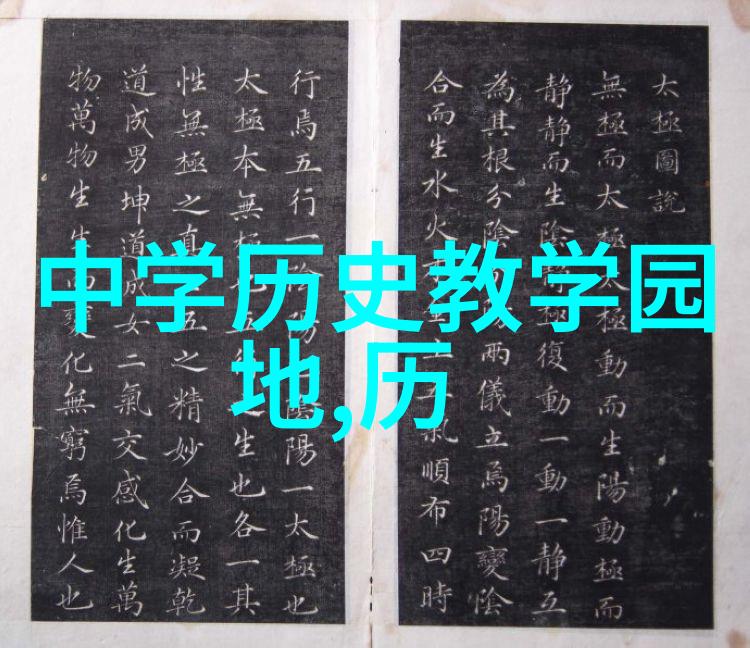 中学历史教学园
地,历
太極圖說
無極而太極太極動而生陽動極而
静静而生陰静極復動一動一静互
為其根分陰陽兩儀立焉陽變陰
合而生水火土氣順布四時
行焉五行一陰陽陰陽一太極也
太極本無極生也各一其
性無極之真五之精妙合而凝乾
道成男坤道成女二氣交感化生萬
物萬物生生而變化無窮焉惟人也